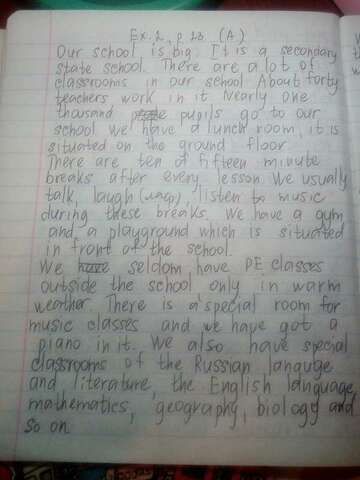 Ex. 2, p 23 (A)
Our school is big. It is a secondary
state school. There are a lot of
classrooms in our school About forty
teachers work in it Nearly one
thousand pupils go to our
school we have a lunch room, it is
situated on the ground floor
There are ten of fifteen minute
breaks after every lesson We usually
talk, laugh (лаф), listen to music
during these breaks. We have a gym
and a playground which is situated
in front of the school.
We have seldom have PE classes
outside the school only in warm
weather. There is a special room for
music classes and we have got a
piano in it. We also have special
classrooms of the Russian languge
and literature, the English language,
mathematics, geography, biology and
so on